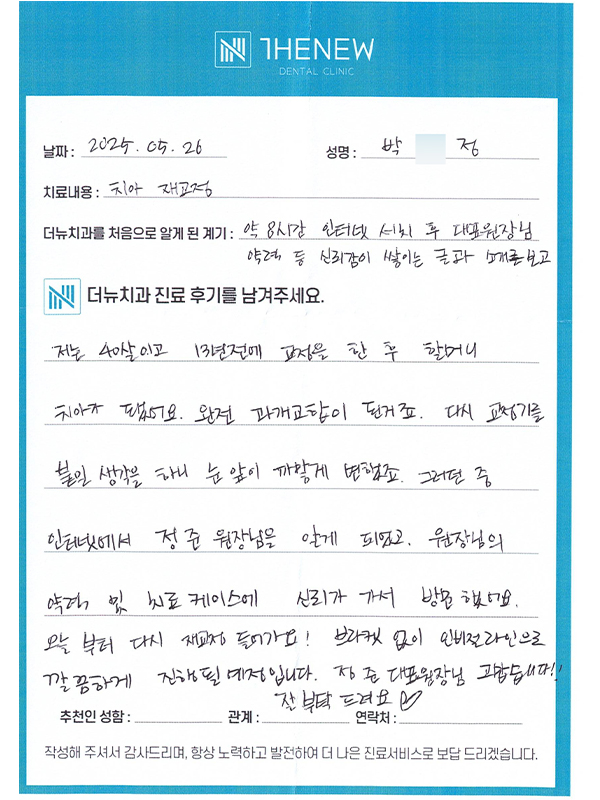 THENEW
DENTAL CLINIC
날짜 : 2025. 05. 26
성명 : 박 정
치료내용 : 치아 재교정
더뉴치과를 처음으로 알게 된 계기 : 약 8시간 인터넷 서치 후 대표원장님
약력 등 신뢰감이 쌓이는 글과 소개를 보고
더뉴치과 진료 후기를 남겨주세요.
저는 40살이고 13년전에 교정을 한 후 할머니
치아가 됐어요. 완전 과개교합이 된거죠. 다시 교정기를
붙일 생각을 하니 눈 앞이 까맣게 변했죠. 그러던 중
인터넷에서 정 준 원장님을 알게 되었고, 원장님의
약력 및 치료 케이스에 신뢰가 가서 방문 했어요.
오늘 부터 다시 재교정 들어가요! 브라켓 없이 인비절라인으로
깔끔하게 진행될 예정입니다. 정 준 대표원장님 고맙습니다!!
잘 부탁 드려요
추천인 성함 : 관계 : 연락처 :
작성해 주셔서 감사드리며, 항상 노력하고 발전하여 더 나은 진료서비스로 보답 드리겠습니다.